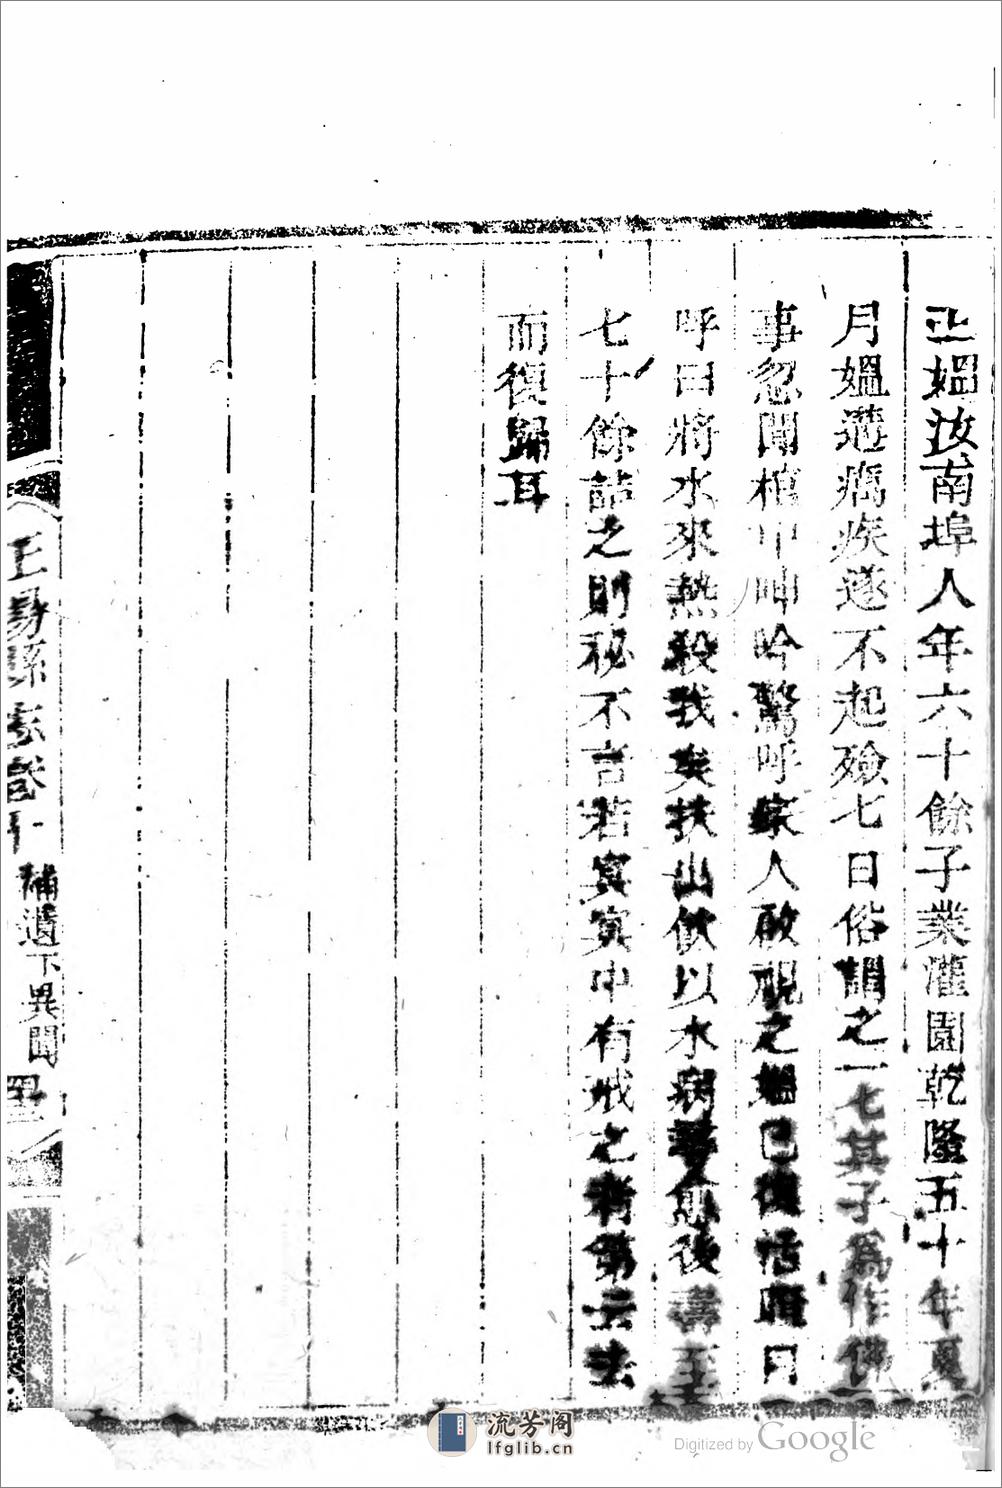 媼汝南埠人年六十餘子業灌園乾隆五十年夏
月媼遘癘疾遂不起殮七日俗謂之一七其子爲作佛
事忽聞棺中呻吟驚呼家人啟視之媼已復活瞋目
呼曰將水來熱殺我矣扶出飲以水病尋愈後壽至
七十餘詰之則秘不言若冥冥中有戒之者第云去
而復歸耳
正陽縣志卷十 補遺下異聞
流芳阁
lfglib.cn
Digitized by Google